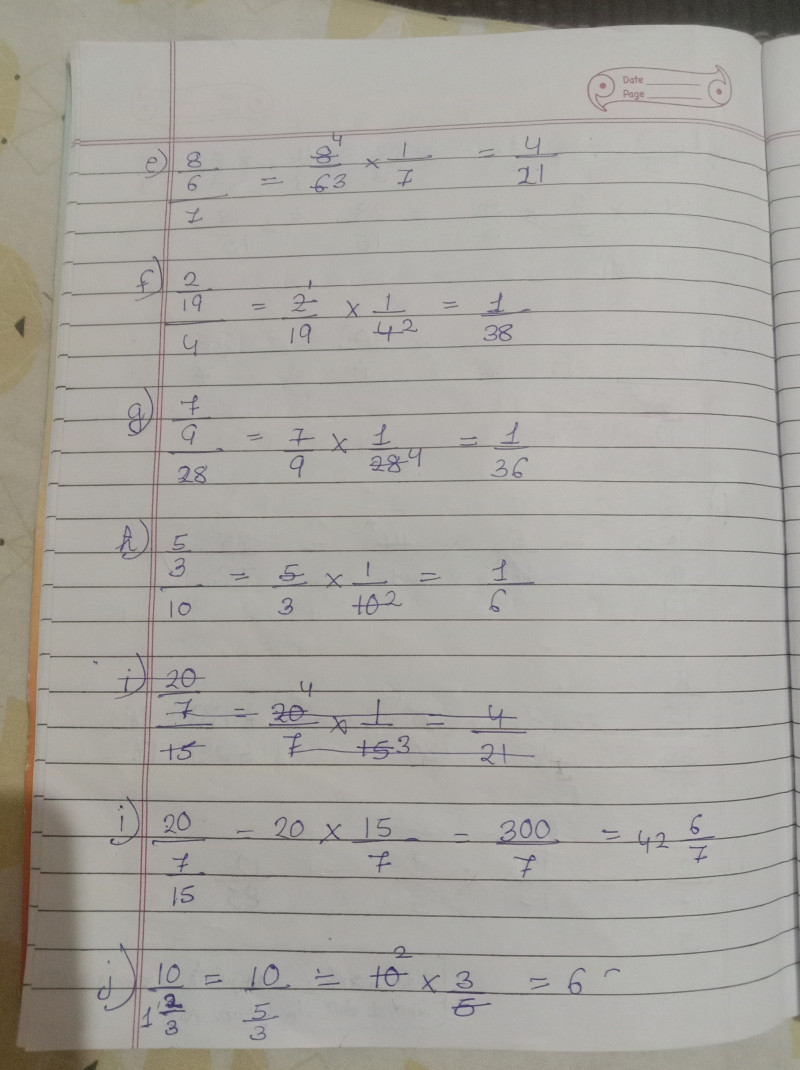 Date
Page
e) 8/6/7 = 8 4/6 3 × 1/7 = 4/21
f) 2/19/4 = 2 1/19 × 1/4 2 = 1/38
g) 7/9/28 = 7/9 × 1/28 4 = 1/36
h) 5/3/10 = 5/3 × 1/10 2 = 1/6
i) 20/7/15 = 20 4/7 × 1/15 3 = 4/21
i) 20/7/15 = 20 × 15/7 = 300/7 = 42 6/7
j) 10/1 2/3 = 10/5/3 = 10 2 × 3/5 = 6